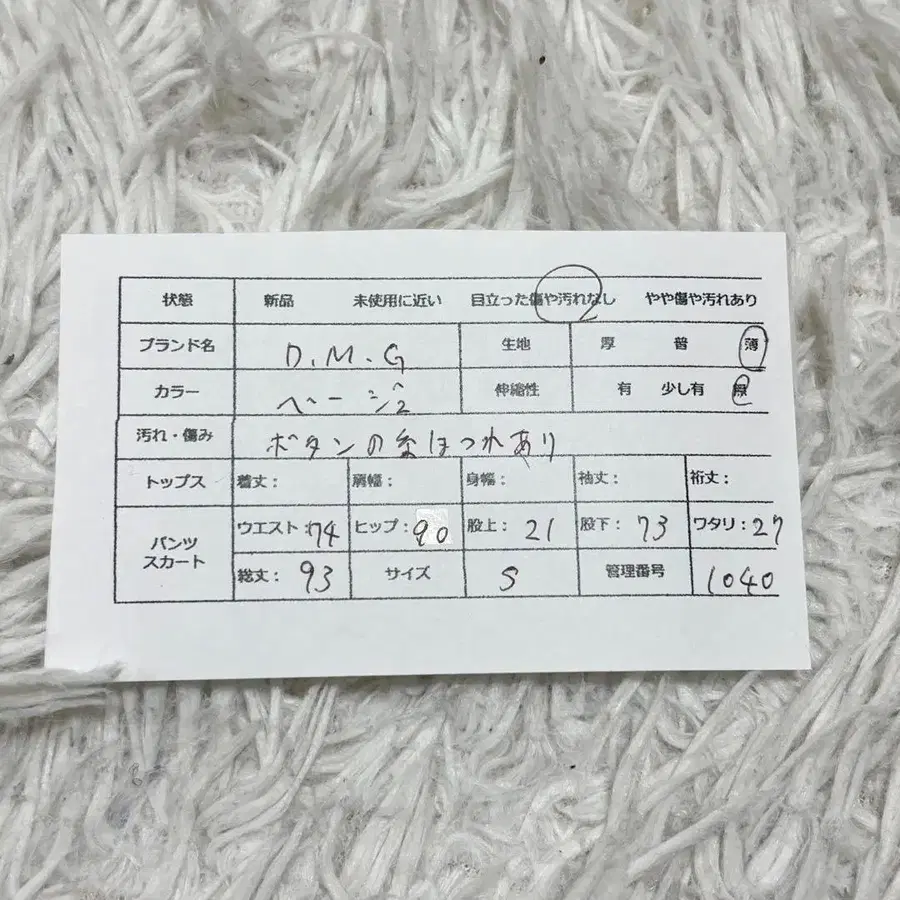 状態 新品 未使用に近い 目立った傷や汚れなし やや傷や汚れあり
ブランド名 D.M.G 生地 厚 普 薄
カラー ベージュ 伸縮性 有 少し有 無
汚れ・傷み ボタンの糸ほつれあり
トップス 着丈: 肩幅: 身幅: 袖丈: 裄丈:
パンツ スカート ウエスト:74 ヒップ:90 股上:21 股下:73 ワタリ:27
総丈:93 サイズ S 管理番号 1040